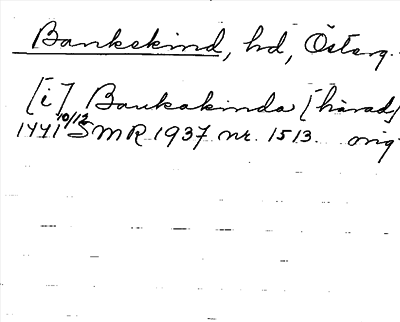 Bankekind, hd, Österg.
[i] Bankakinda [härad]
10/12
1441 SMR 1937 nr. 1513. orig